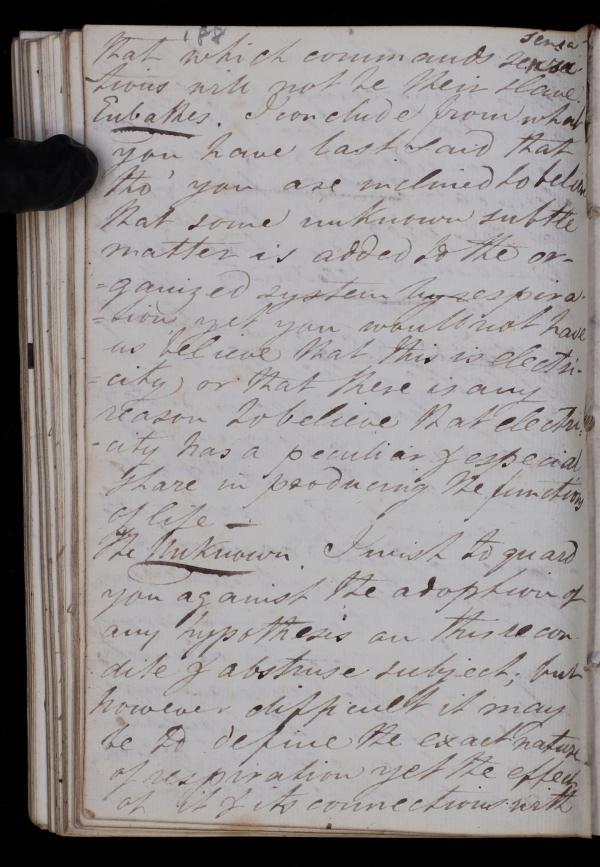 188
sensa
that which commands sensa
tions will not be their slave.
Eubathes. I conclude from what
you have last said that
tho' you are inclined to believe
that some unknown subtle
matter is added to the or-
-ganized system by respira-
-tion yet you would not have
us believe that this is electri-
-city, or that there is any
reason to believe that electri-
-city has a peculiar & especial
share in producing the functions
of life -
The Unknown. I wish to guard
you against the adoption of
any hypothesis on this recon
dite & abstruse subject, but
however difficult it may
be to define the exact nature
of respiration yet the effect
of it & its connections with